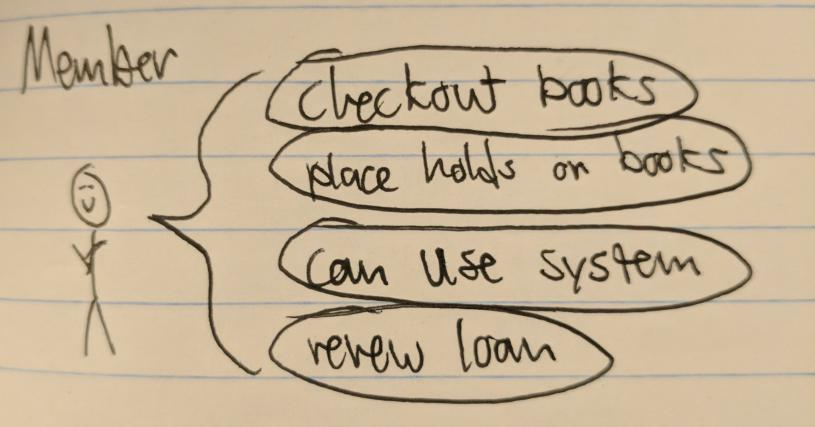 Member
checkout books
place holds on books
can use system
renew loan